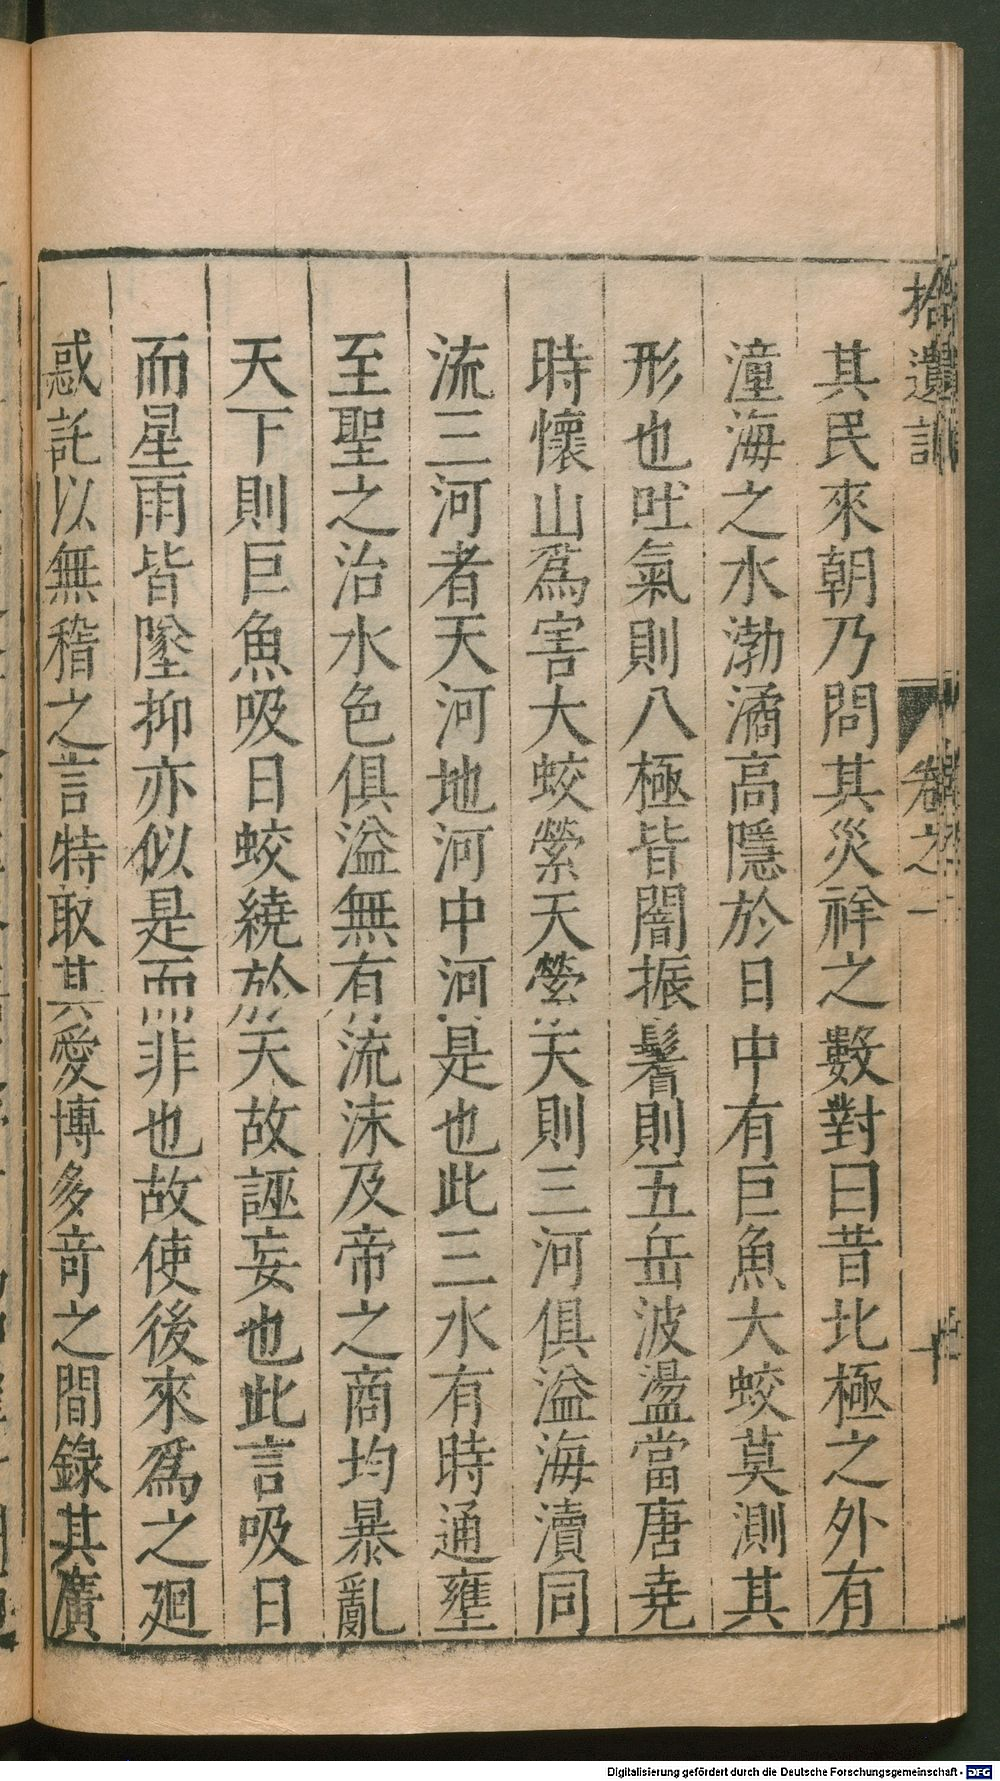 拾遺記
卷之一
其民來朝乃問其災祥之數對曰昔北極之外有
潼海之水渤潏高隱於日中有巨魚大蛟莫測其
形也吐氣則八極皆闇振鬐則五岳波盪當唐堯
時懷山爲害大蛟縈天縈天則三河俱溢海瀆同
流三河者天河地河中河是也此三水有時通壅
至聖之治水色俱溢無有流沫及帝之商均暴亂
天下則巨魚吸日蛟繞於天故誣妄也此言吸日
而星雨皆墜抑亦似是而非也故使後來爲之迴
惑託以無稽之言特取其愛博多奇之間錄其廣
Digitalisierung gefördert durch die Deutsche Forschungsgemeinschaft - DFG